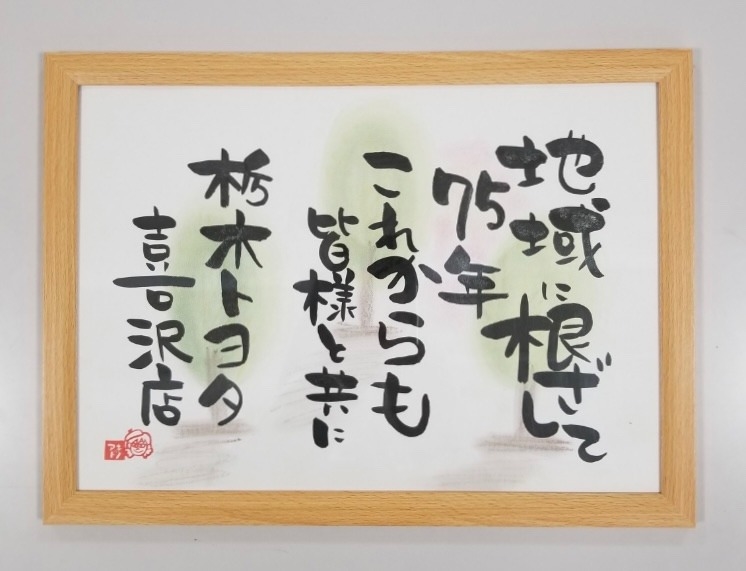 地域に根ざして
75年
これからも
皆様と共に
栃木トヨタ
喜沢店